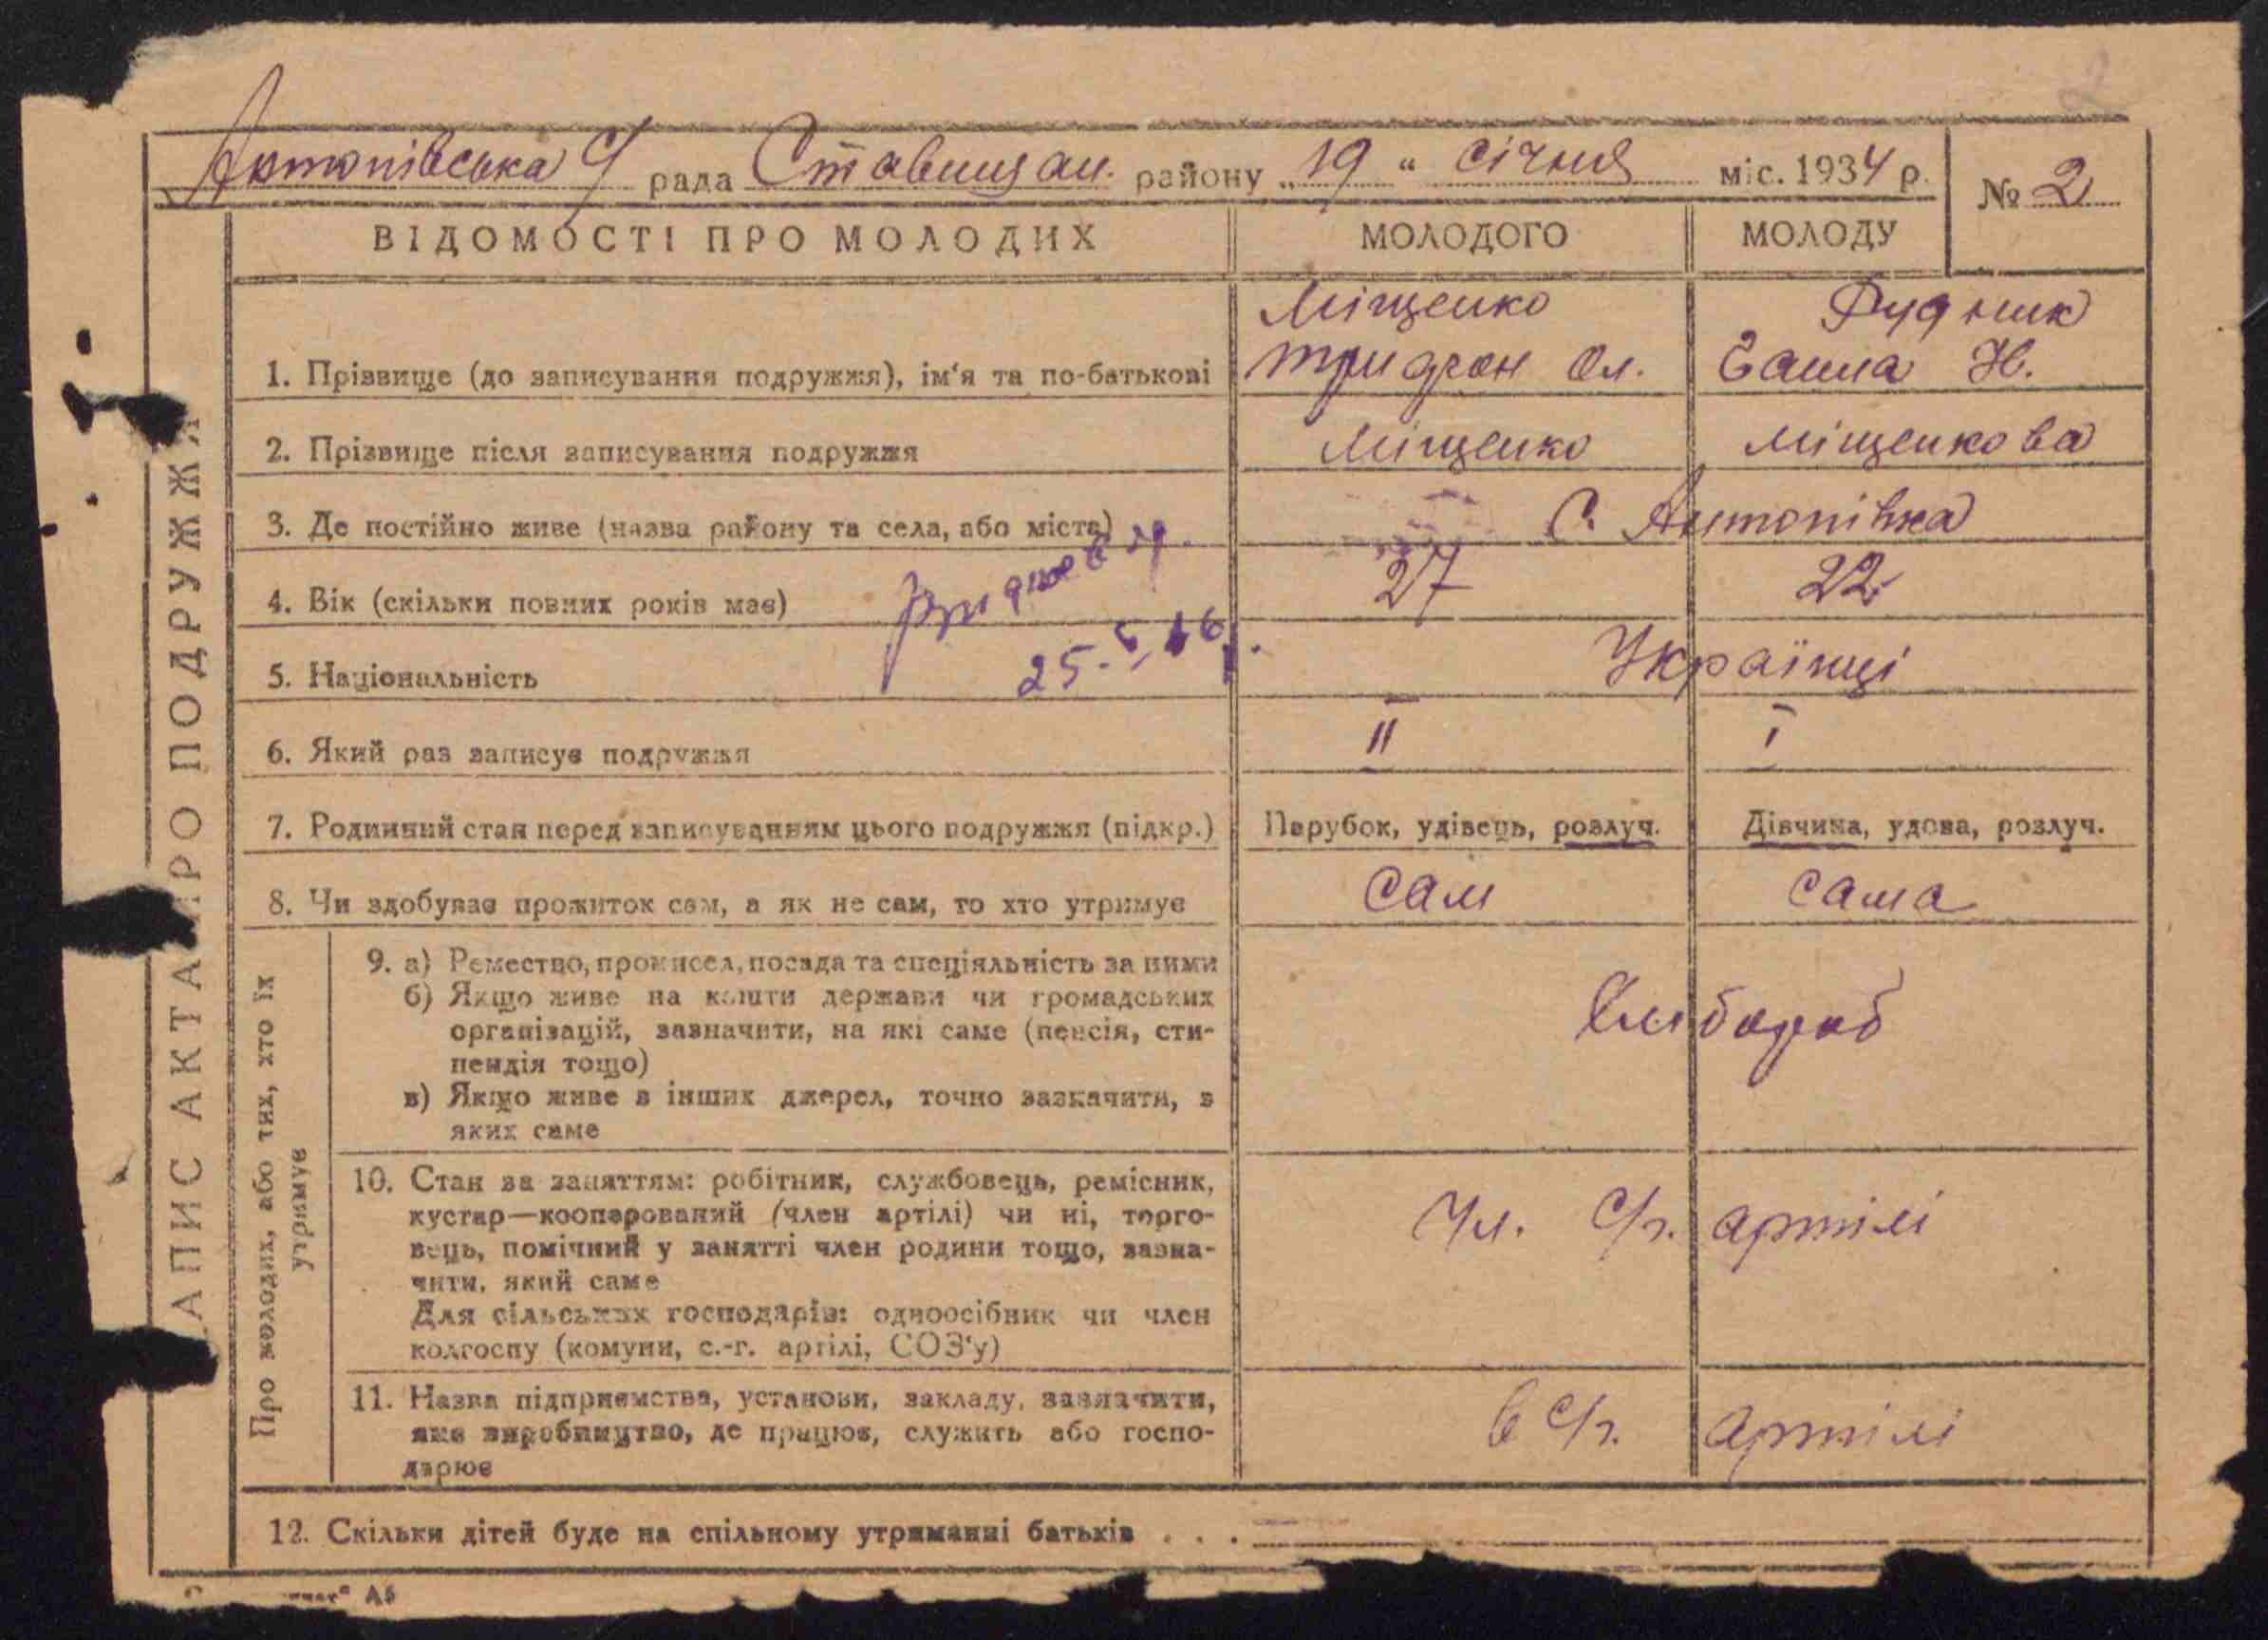 Антонівська С/ рада Ставищан. району „19“ січня міс. 1934 р. № 2
ВІДОМОСТІ ПРО МОЛОДИХ МОЛОДОГО МОЛОДУ
Міщенко Рудник
1. Прізвище (до записування подружжя), ім'я та по-батькові Тридон Ол. Ганна Н.
2. Прізвище після записування подружжя Міщенко Міщенкова
3. Де постійно живе (назва району та села, або міста) С. Антонівка
4. Вік (скільки повних років має) 27 22
25.5.46р.
5. Національність Українці
6. Який раз записує подружжя II I
7. Родинний стан перед записуванням цього подружжя (підкр.) Парубок, удівець, розлуч. Дівчина, удова, розлуч.
8. Чи здобуває прожиток сам, а як не сам, то хто утримує сам сама
АПИС АКТА ПРО ПОДРУЖЖЯ
Про молодих, або тих, хто їх
утримує
9. а) Ремество, промисел, посада та спеціяльність за ними
б) Якщо живе на кошти держави чи громадських
організацій, зазначити, на які саме (пенсія, сти-
пендія тощо)
в) Якщо живе з інших джерел, точно зазначити, з
яких саме
Хлібороб
10. Стан за заняттям: робітник, службовець, ремісник,
кустар—кооперований (член артілі) чи ні, торго-
вець, помічний у занятті член родини тощо, зазна-
чити, який саме
Для сільських господарів: одноосібник чи член
колгоспу (комуни, с.-г. артілі, СОЗ'у)
Чл. С/г. артілі
11. Назва підприємства, установи, закладу, зазначити,
яке виробництво, де працює, служить або госпо-
дарює
в С/г. артілі
12. Скільки дітей буде на спільному утриманні батьків . . .
А5